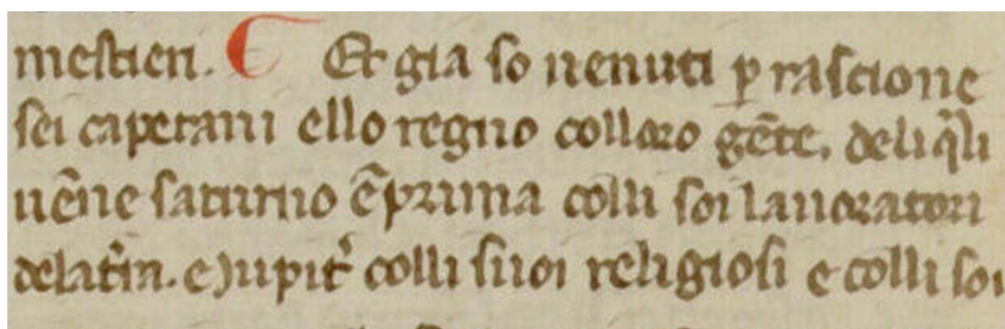 mestieri. Et gia so uenuti ꝑ rascione
sei capetani ello regno colloro gẽte. deli q̃li
uẽne saturno ẽprima colli soi lauoratori
delat̃ra. e Jupit̃ colli suoi religiosi e colli soi